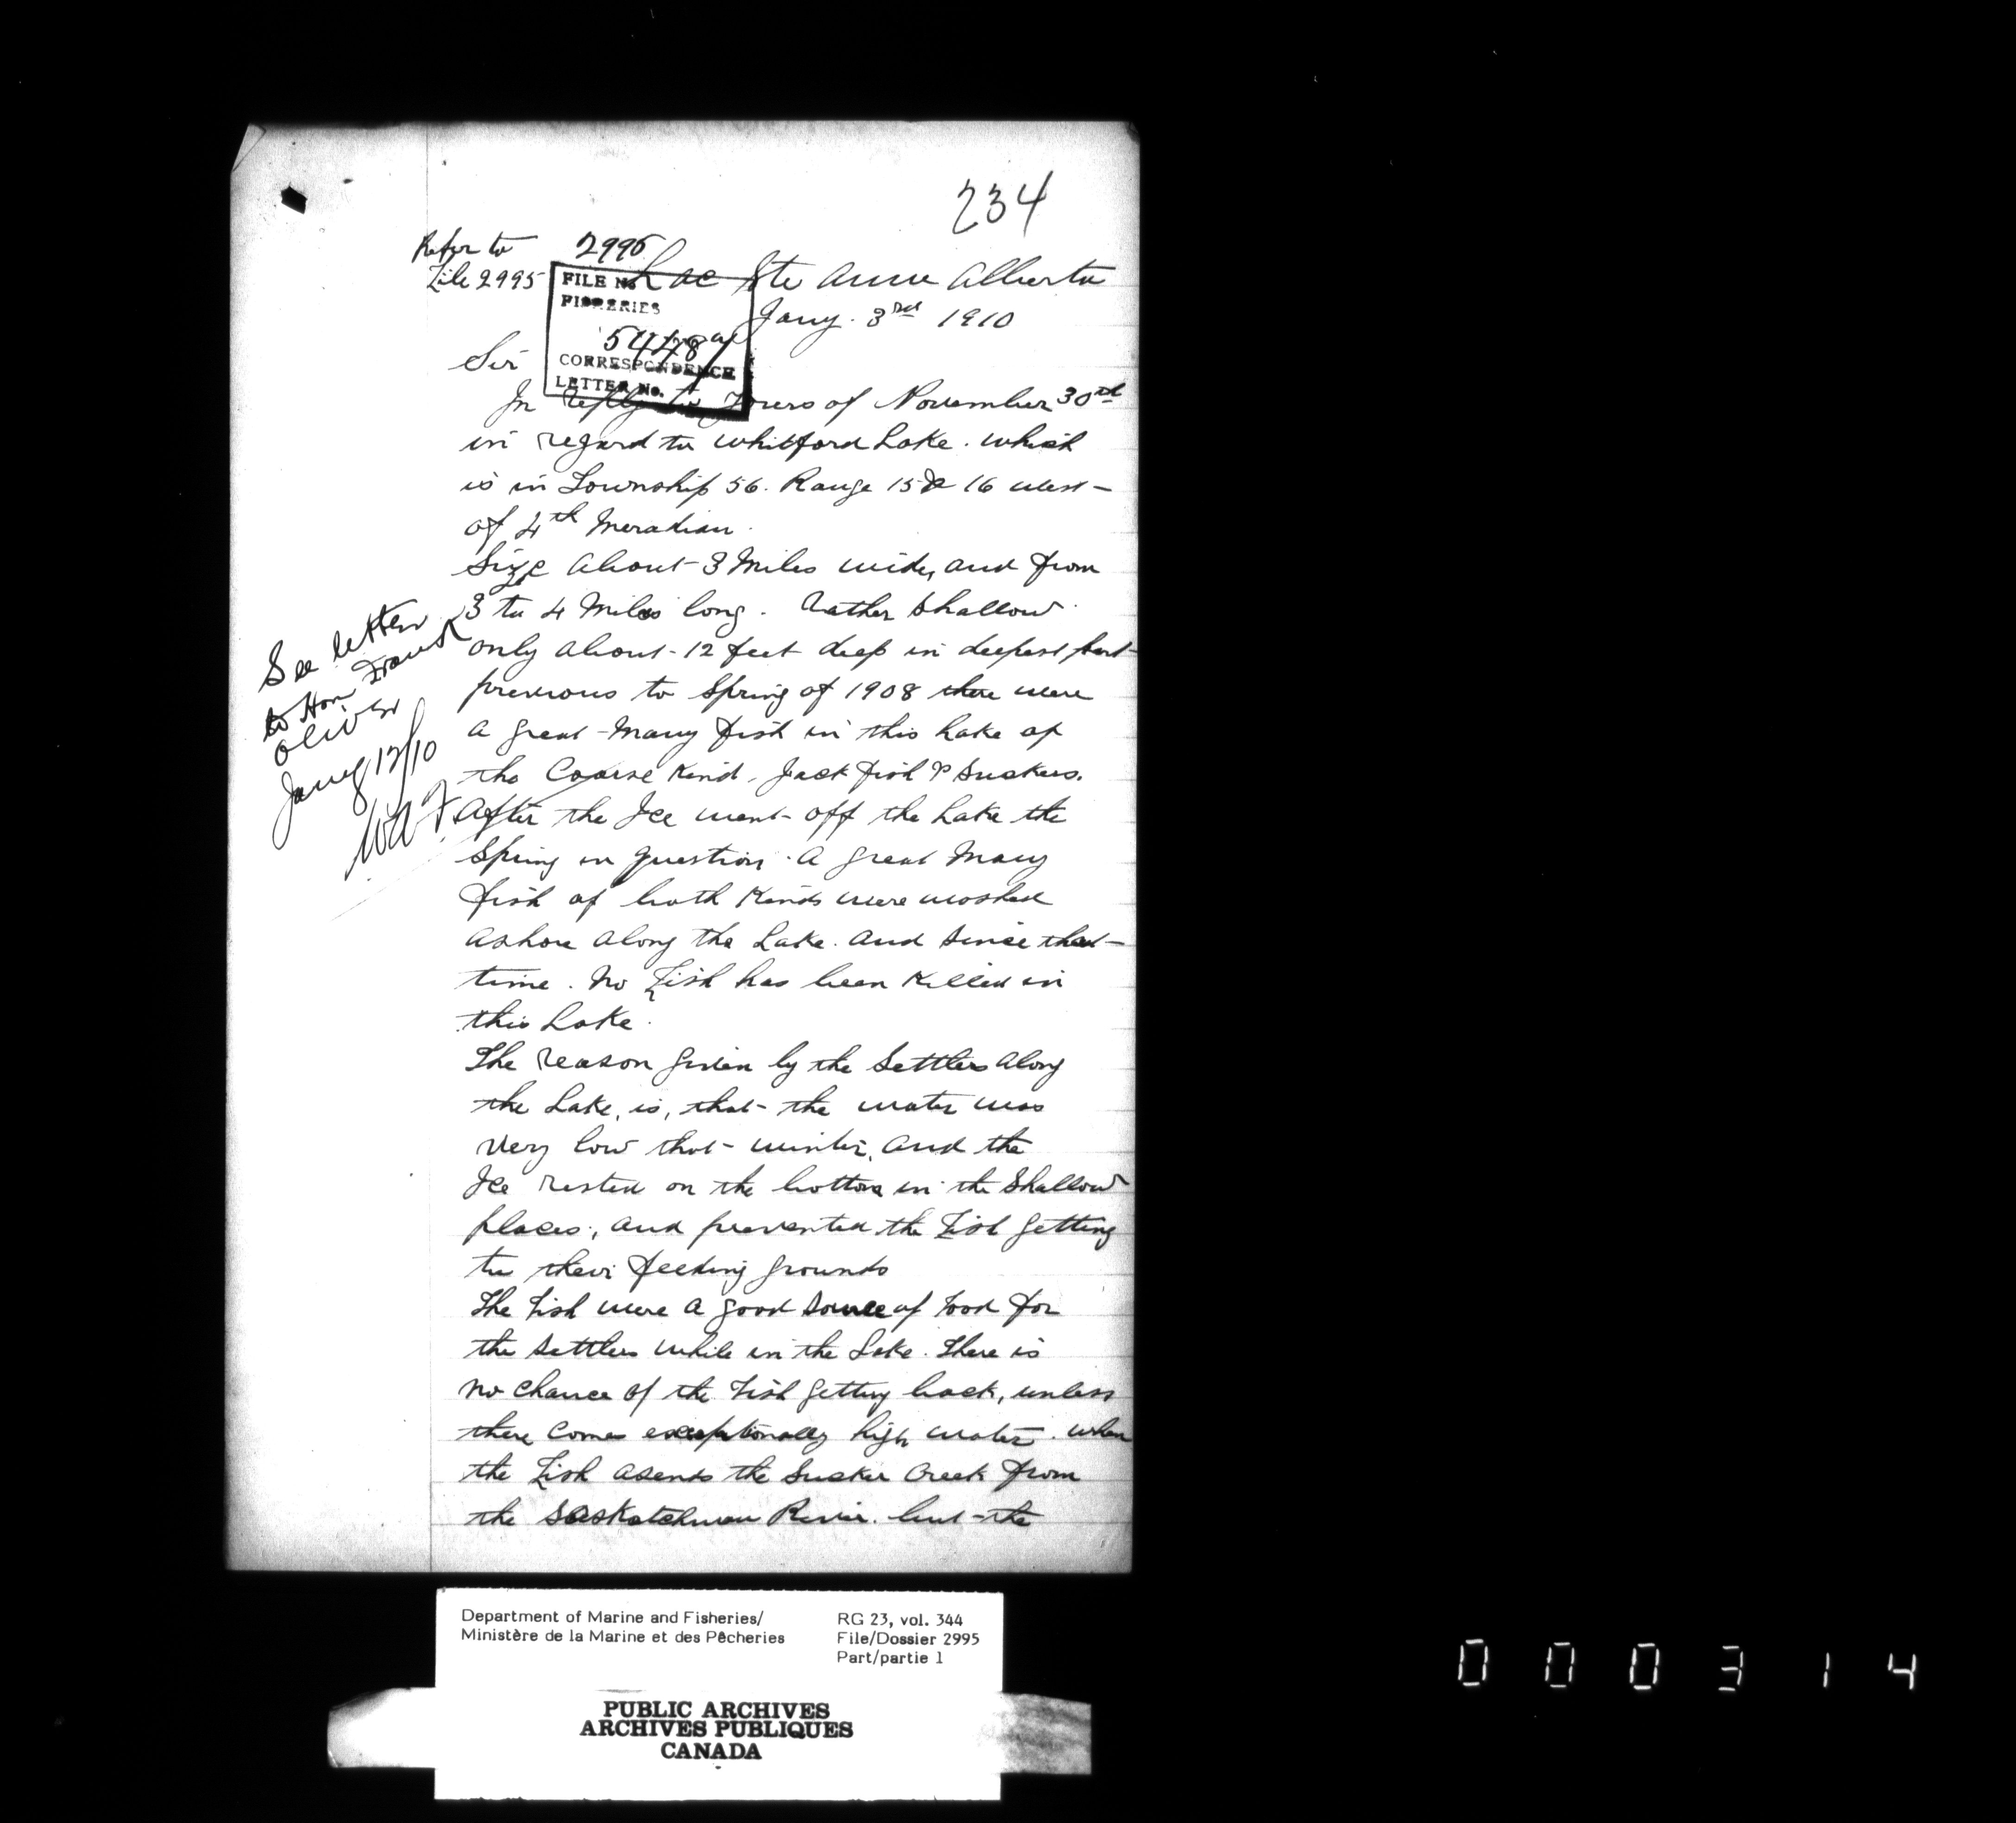 234
Refer to
File 2995
2995
FILE No.
FISHERIES
5448
CORRESPONDENCE
LETTER No.
Lac Ste Anne Alberta
Jany. 3rd 1910
Sir
In reply to Yours of November 30th
in regard to Whitford Lake. which
is in Township 56. Range 15 & 16 West
of 4th Meradian.
Size about 3 Miles wide, and from
3 to 4 Miles long. Rather Shallow
only about 12 feet deep in deepest part
previous to Spring of 1908 there were
a great Many fish in this Lake of
the Coarse Kind, Jack fish & Suckers.
After the Ice went off the Lake the
Spring in question. a great Many
fish of both Kinds were washed
ashore along the Lake. and Since that
time. No Fish has been Killed in
this Lake.
The reason given by the Settlers along
the Lake, is, that the water was
very low that winter, and the
Ice rested on the bottom in the Shallow
places, and prevented the Fish getting
to their feeding grounds
The Fish were a good source of food for
the Settlers while in the Lake. There is
no chance of the Fish getting back, unless
there comes exceptionally high water. when
the Fish asends the Sucker Creek from
the Saskatchewan River. but the
See letter
to Hon. Frank
Oliver
Jany 12/10
Department of Marine and Fisheries/
Ministère de la Marine et des Pêcheries
RG 23, vol. 344
File/Dossier 2995
Part/partie 1
PUBLIC ARCHIVES
ARCHIVES PUBLIQUES
CANADA
000314